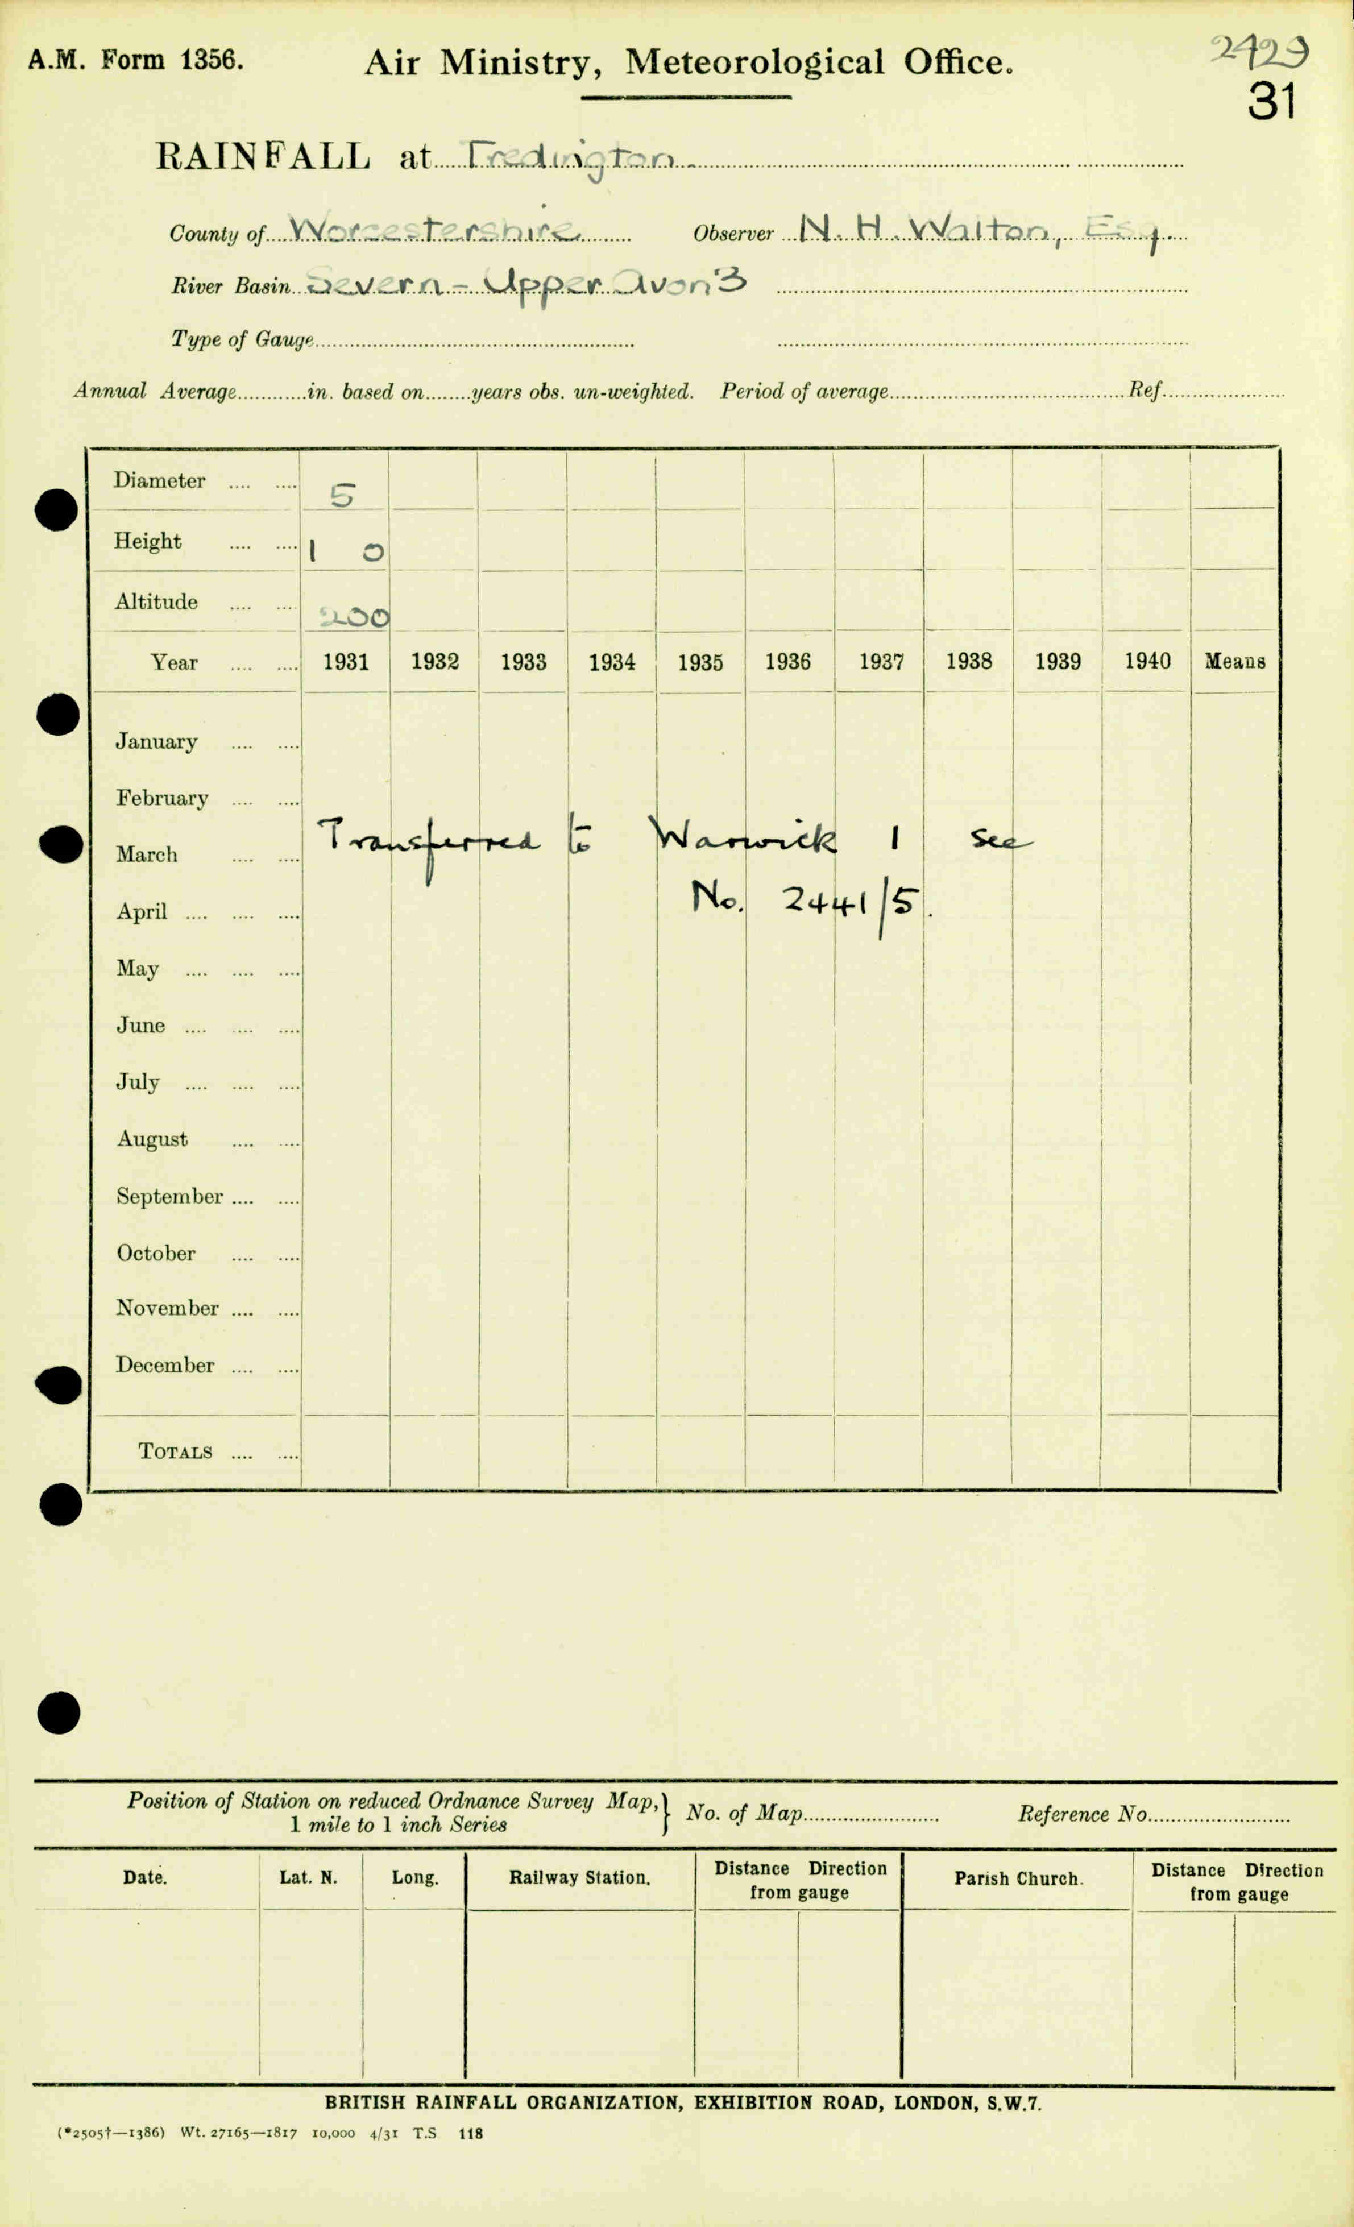 A.M. Form 1356.
Air Ministry, Meteorological Office.
2429
31
RAINFALL at Tredington.
County of Worcestershire Observer N. H. Walton, Esq.
River Basin Severn - Upper Avon 3
Type of Gauge
Annual Average in. based on years obs. un-weighted. Period of average Ref.
Diameter 5
Height 1 0
Altitude 200
Year 1931 1932 1933 1934 1935 1936 1937 1938 1939 1940 Means
January
February
Transferred to Warwick 1 see
March
No. 2441/5.
April
May
June
July
August
September
October
November
December
TOTALS
Position of Station on reduced Ordnance Survey Map,
1 mile to 1 inch Series } No. of Map Reference No.
Date. Lat. N. Long. Railway Station. Distance Direction from gauge Parish Church. Distance Direction from gauge
BRITISH RAINFALL ORGANIZATION, EXHIBITION ROAD, LONDON, S.W.7.
(*2505†—1386) Wt. 27165—1817 10,000 4/31 T.S 118